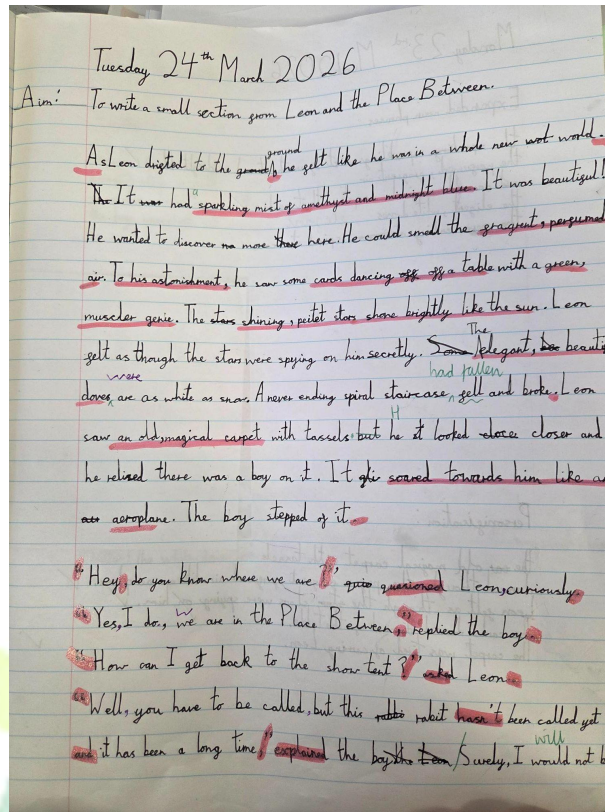 Tuesday 24th March 2026
Aim: To write a small section from Leon and the Place Between.
As Leon drifted to the ground ground, he felt like he was in a whole new wot world.
It was had a sparkling mist of amethyst and midnight blue. It was beautiful!
He wanted to discover more there here. He could smell the fragrent, perfumed
air. To his astonishment, he saw some cards dancing off off a table with a green,
muscler genie. The stars shining, peitet stars shone brightly like the sun. Leon
felt as though the stars were spying on him secretly. Some The elegant, beauti
doves, were are as white as snow. A never ending spiral staircase, had fallen fell and broke. Leon
saw an old, magical carpet with tassels but H he it looked closes closer and
he relised there was a boy on it. It soared towards him like a
aeroplane. The boy stepped of it.
"Hey, do you know where we are?" quie quesioned Leon, curiously.
"Yes, I do., W we are in the Place Between," replied the boy.
"How can I get back to the show tent?" asked Leon.
"Well, you have to be called, but this rabbi rabit hasn't been called yet
and it has been a long time," explained the boy the Leon / Surely, I will would not b